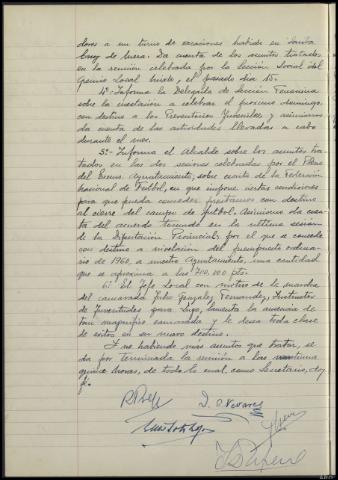 dores a un turno de vacaciones habido en Santa
Cruz de Mera. Da cuenta de los asuntos tratados
en la reunión celebrada por la Sección Social del
Gremio Local mixto, el pasado día 15.
4º Informa la Delegada de Sección Femenina
sobre la cuestación a celebrar el próximo domingo
con destino a los Preventorios Juveniles y asimismo
da cuenta de las actividades llevadas a cabo
durante el mes.
5º Informa el Alcalde sobre los asuntos tra-
tados en las dos sesiones celebradas por el Pleno
del Excmo. Ayuntamiento, sobre carta de la Federación
Nacional de Fútbol, en que impone ciertas condiciones
para que pueda conceder préstamos con destino
al cierre del campo de fútbol. Asimismo da cuen-
ta del acuerdo tomado en la última sesión
de la Diputación Provincial, por el que se concede
con destino a nivelación del presupuesto ordina-
rio de 1960, a nuestro Ayuntamiento, una cantidad
que se aproxima a las 700.000 pts.
6º El Jefe Local con motivo de la marcha
del camarada Julio González Fernández, Instructor
de Juventudes para Lugo, lamenta la ausencia de
tan magnífico camarada y le desea toda clase
de éxitos en su nuevo destino.
Y no habiendo más asuntos que tratar, se
da por terminada la reunión a las
quince horas, de todo lo cual, como Secretario, doy
fé.